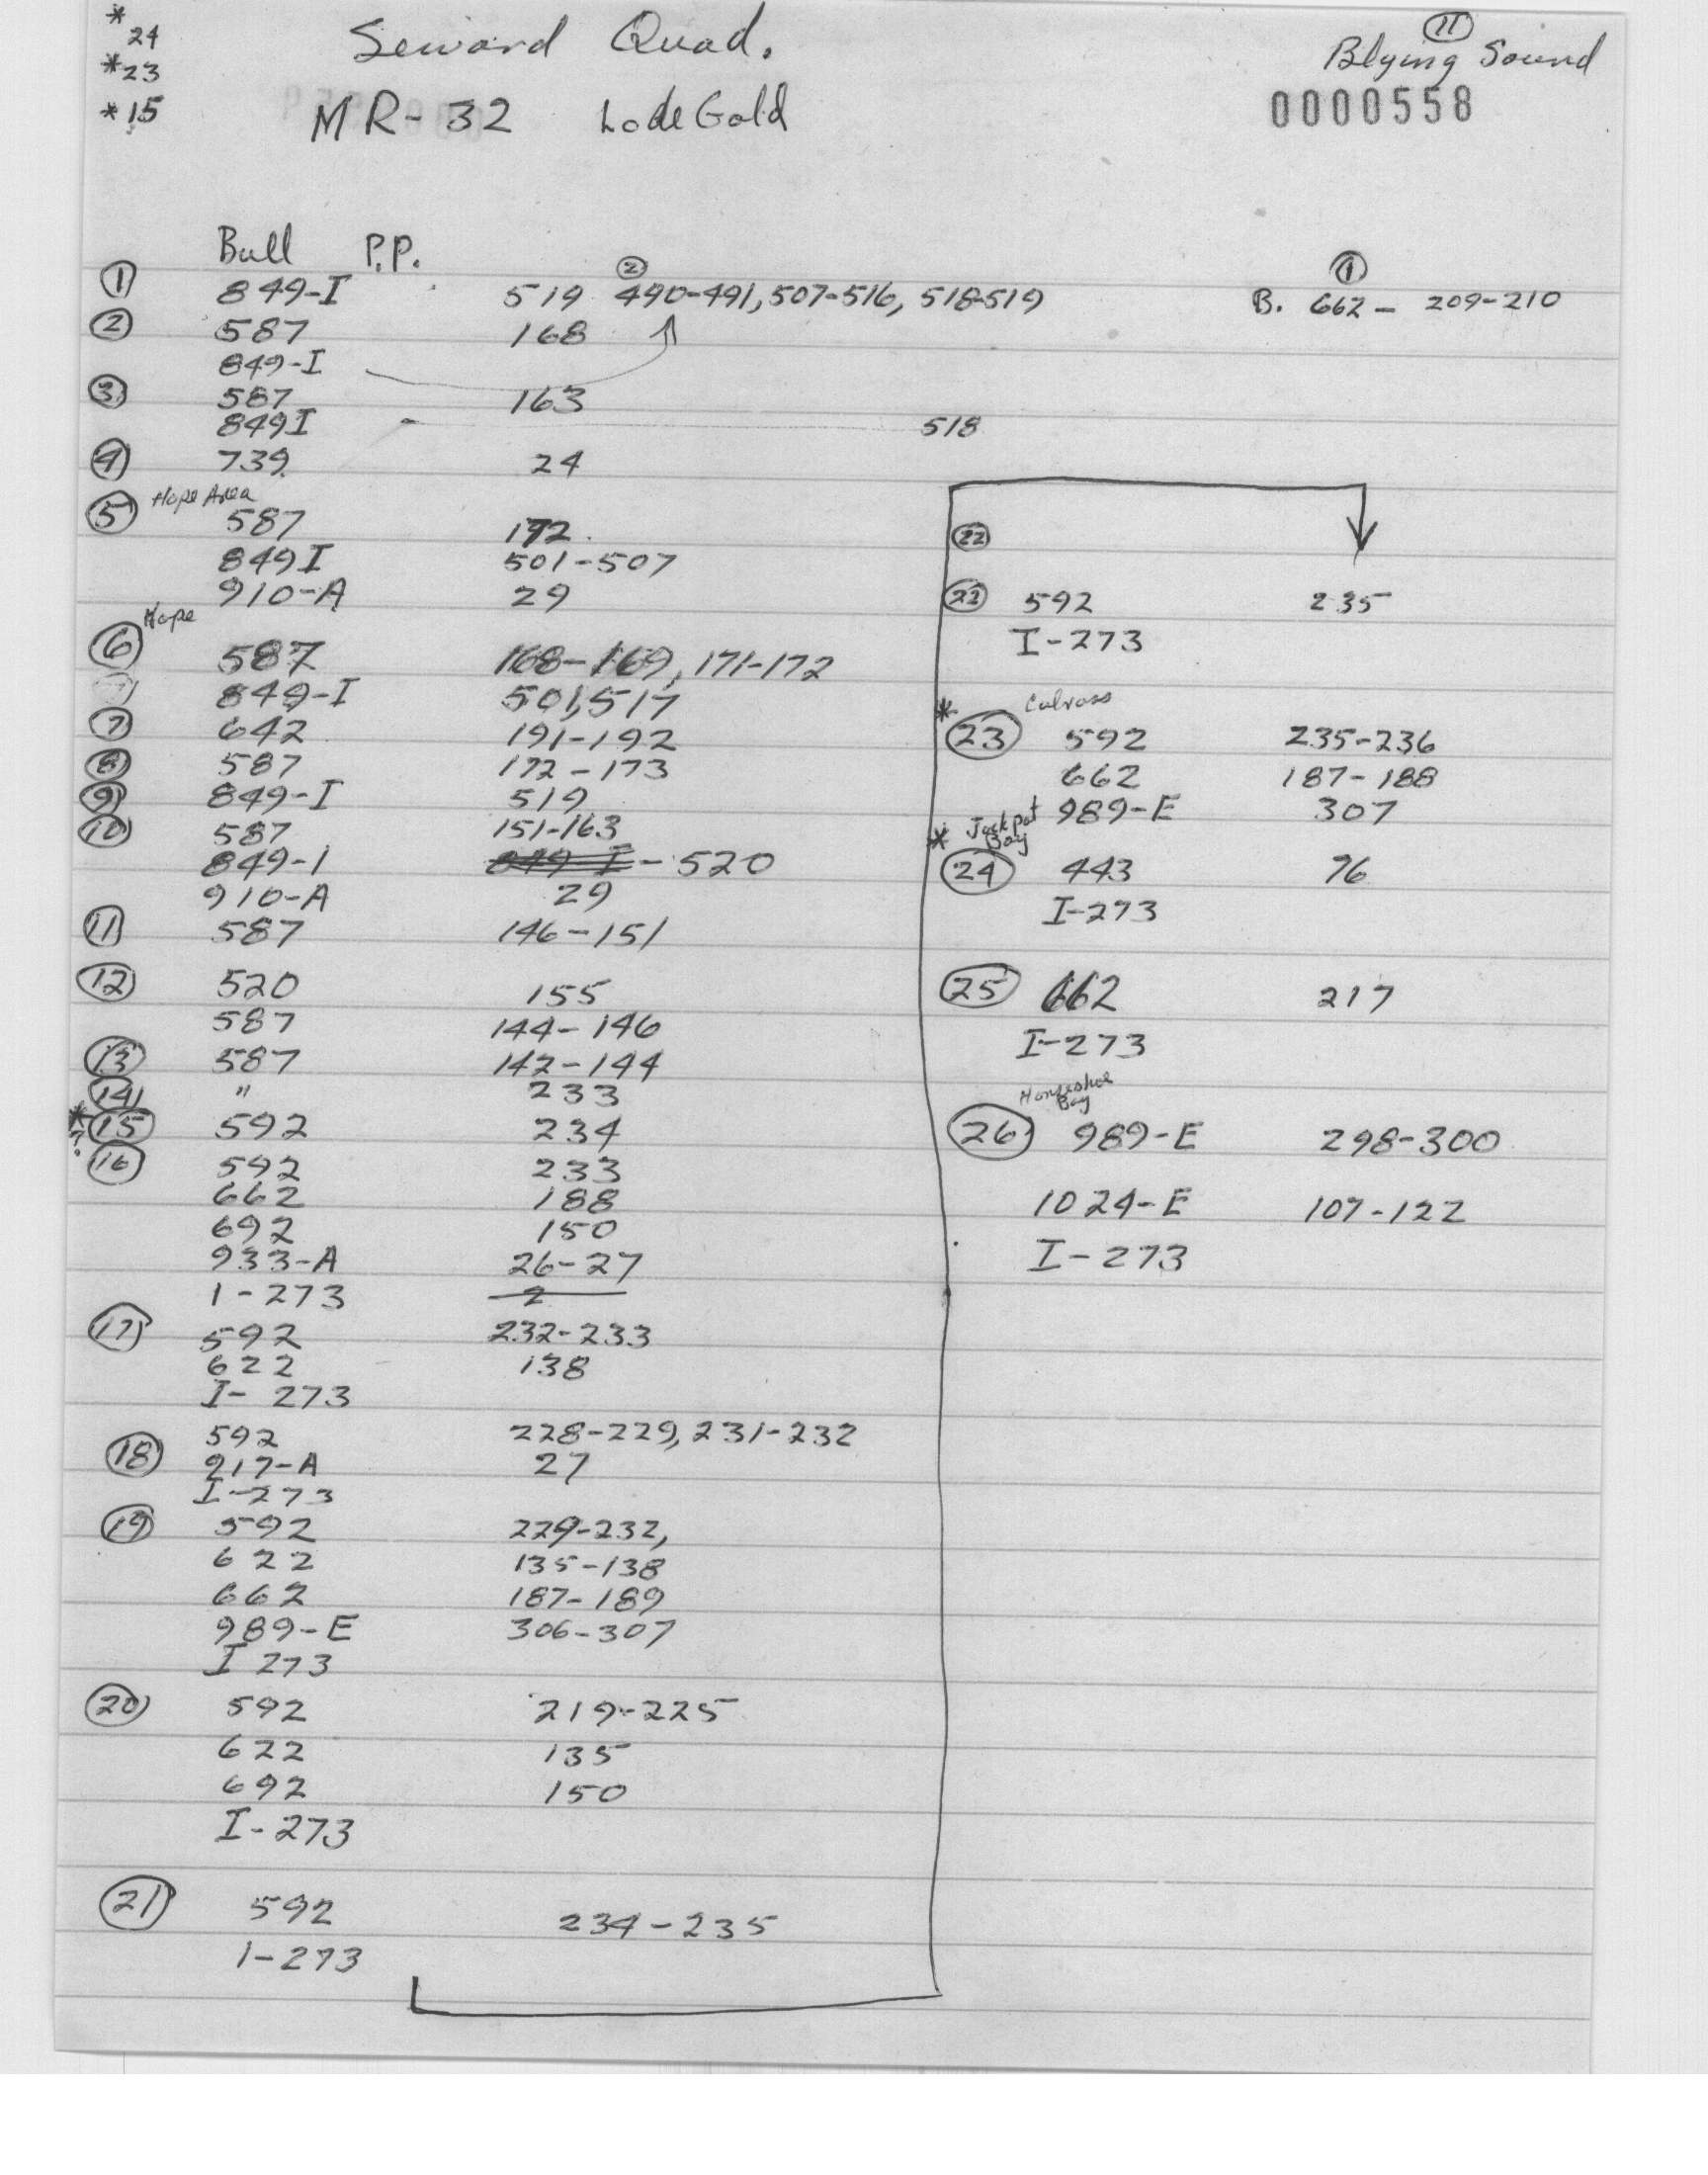 * 24
* 23
* 15
Seward Quad.
MR-32 Lode Gold
11
Blying Sound
0000558
Bull P.P.
1 849-I 519 2 490-491, 507-516, 518-519
2 587 168
849-I
3 587 163
849I 518
4 739 24
5 Hope Area
587 172
849I 501-507
910-A 29
Hope
6 587 168-169, 171-172
849-I 501, 517
7 642 191-192
8 587 172-173
9 849-I 519
10 587 151-163
849-1 849 I - 520
910-A 29
11 587 146-151
12 520 155
587 144-146
13 587 142-144
14 " 233
*? 15 592 234
16 592 233
662 188
692 150
933-A 26-27
1-273 2
17 592 232-233
622 138
I-273
18 592 228-229, 231-232
917-A 27
I-273
19 592 229-232,
622 135-138
662 187-189
989-E 306-307
I 273
20 592 219-225
622 135
692 150
I-273
21 592 234-235
1-273
1
B. 662 - 209-210
22
22 592 235
I-273
* Culross
23 592 235-236
662 187-188
989-E 307
* Jackpot Bay
24 443 76
I-273
25 662 217
I-273
Horseshoe Bay
26 989-E 298-300
1024-E 107-122
I-273